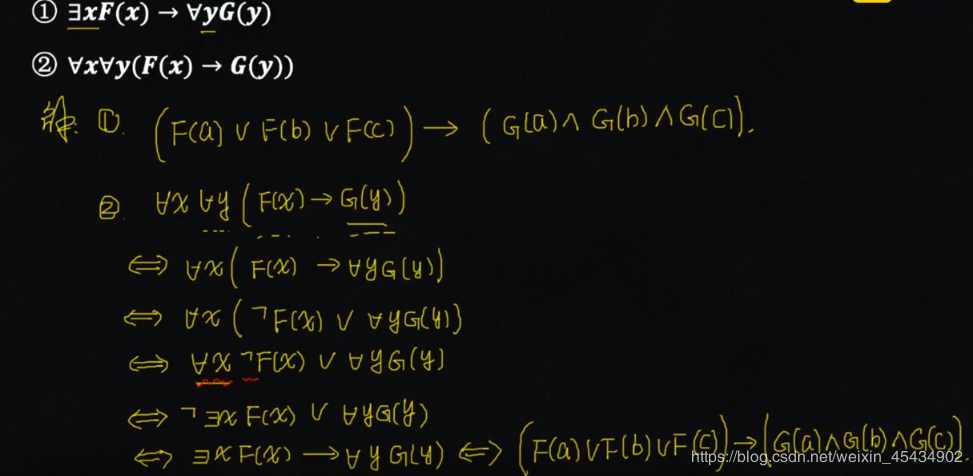 ① ∃xF(x) → ∀yG(y)
② ∀x∀y(F(x) → G(y))
解. ①. (F(a) ∨ F(b) ∨ F(c)) → (G(a) ∧ G(b) ∧ G(c)).
② ∀x ∀y (F(x) → G(y))
⇔ ∀x (F(x) → ∀yG(y))
⇔ ∀x (¬F(x) ∨ ∀yG(y))
⇔ ∀x ¬F(x) ∨ ∀yG(y)
⇔ ¬∃x F(x) ∨ ∀yG(y)
⇔ ∃x F(x) → ∀y G(y) ⇔ (F(a)∨F(b)∨F(c)) → (G(a)∧G(b)∧G(c))
https://blog.csdn.net/weixin_45434902